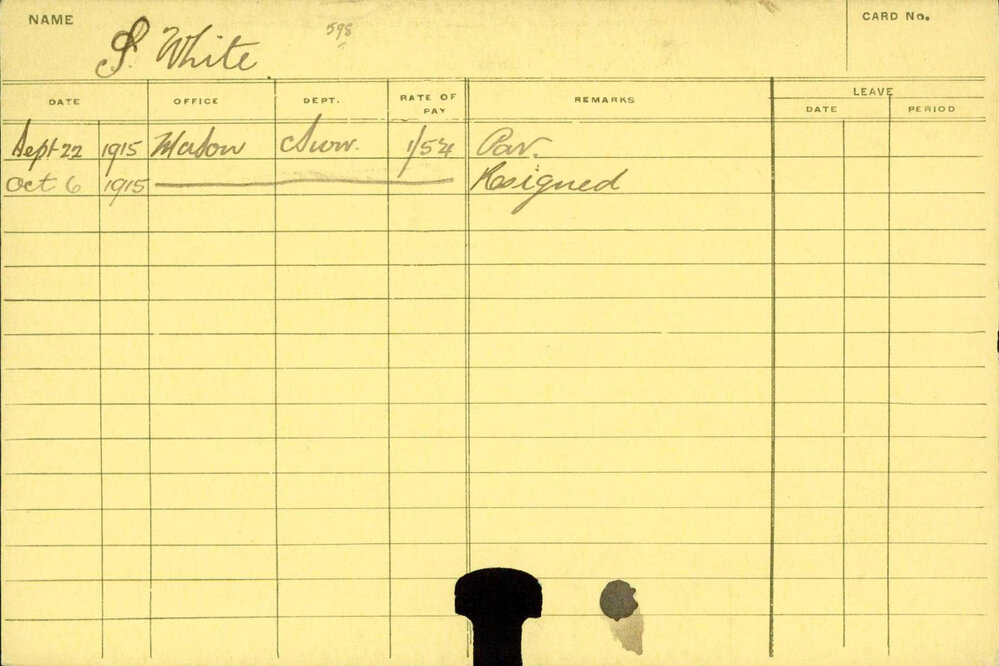 NAME
S. White
598
CARD No.
DATE OFFICE DEPT. RATE OF PAY REMARKS LEAVE
DATE PERIOD
Sept 22 1915 Mason Surv. Par.
Oct 6 1915 Resigned